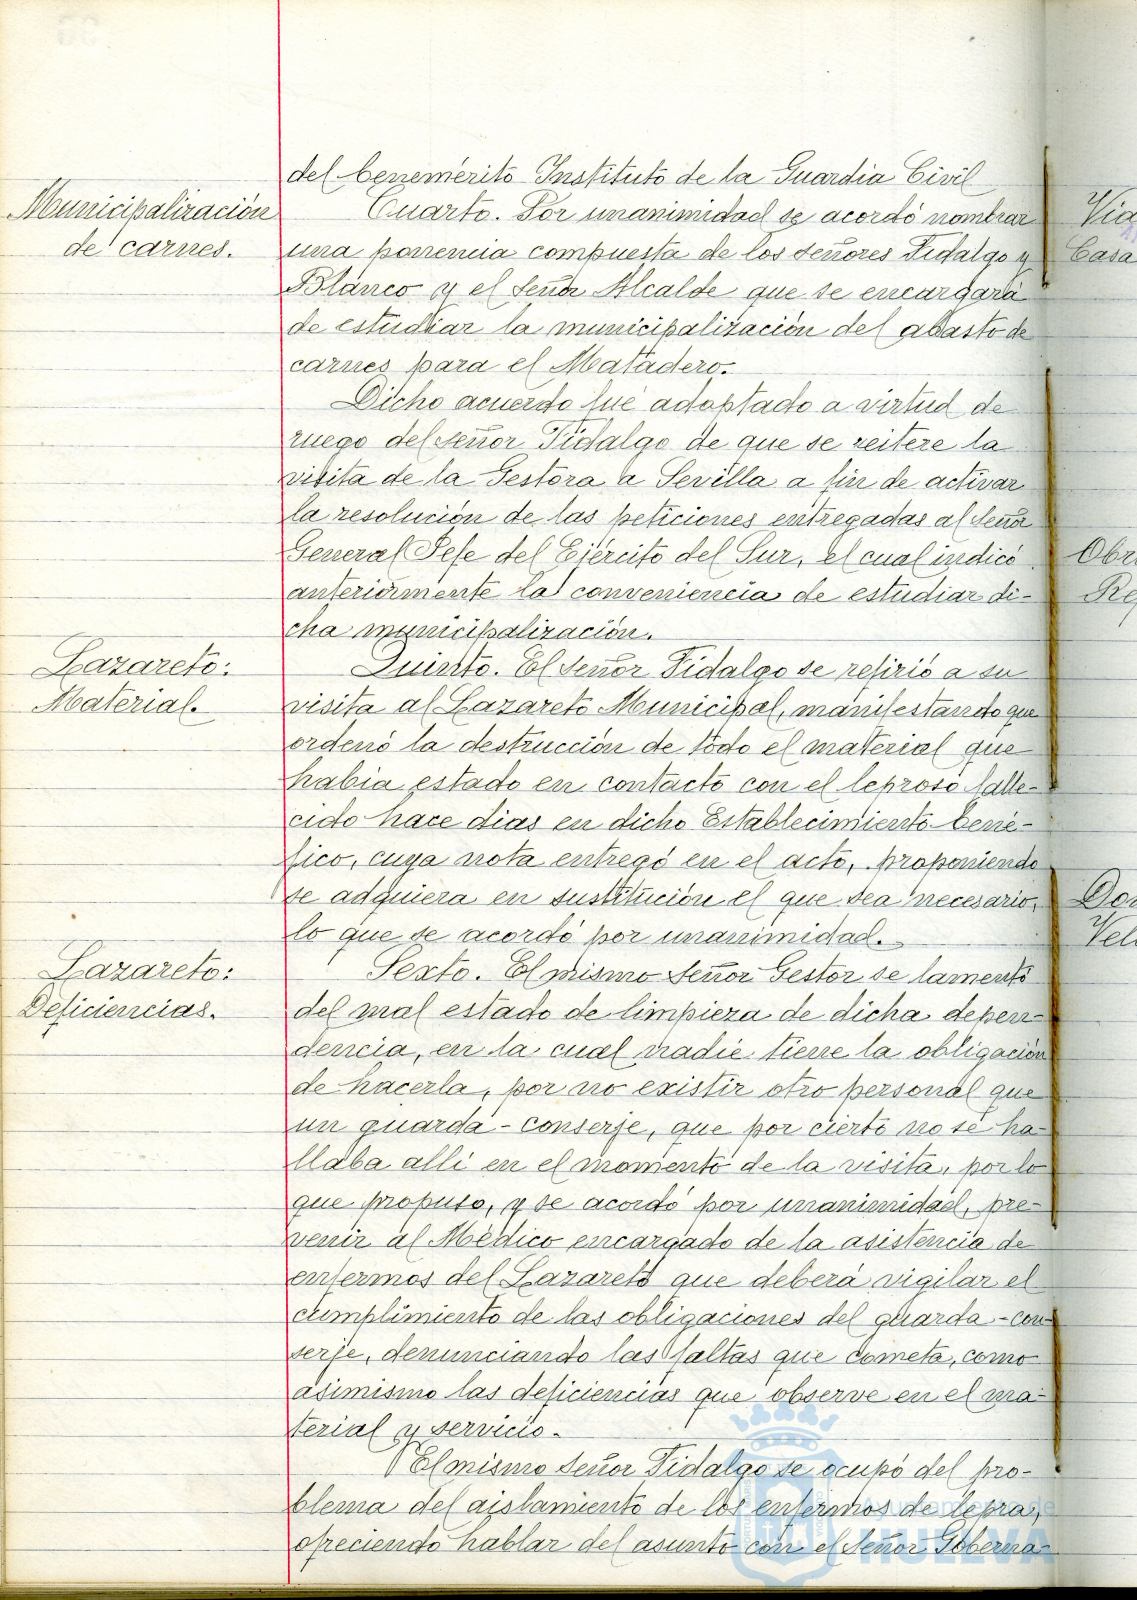 del benemérito Instituto de la Guardia Civil
Municipalización
de carnes.
Cuarto. Por unanimidad se acordó nombrar
una ponencia compuesta de los señores Fidalgo y
Blanco y el Señor Alcalde que se encargará
de estudiar la municipalización del abasto de
carnes para el Matadero.
Dicho acuerdo fué adoptado a virtud de
ruego del señor Fidalgo de que se reitere la
visita de la Gestora a Sevilla a fin de activar
la resolución de las peticiones entregadas al Señor
General Jefe del Ejército del Sur, el cual indicó
anteriormente la conveniencia de estudiar di-
cha municipalización.
Lazareto:
Material.
Quinto. El Señor Fidalgo se refirió a su
visita al Lazareto Municipal, manifestando que
ordenó la destrucción de todo el material que
habia estado en contacto con el leproso falle-
cido hace dias en dicho Establecimiento bené-
fico, cuya nota entregó en el acto, proponiendo
se adquiera en sustitución el que sea necesario,
lo que se acordó por unanimidad.
Lazareto:
Deficiencias.
Sexto. El mismo Señor Gestor se lamentó
del mal estado de limpieza de dicha depen-
dencia, en la cual nadie tiene la obligación
de hacerla, por no existir otro personal que
un guarda-conserje, que por cierto no se ha-
llaba alli en el momento de la visita, por lo
que propuso, y se acordó por unanimidad, pre-
venir al Médico encargado de la asistencia de
enfermos del Lazareto que deberá vigilar el
cumplimiento de las obligaciones del guarda-con-
serje, denunciando las faltas que cometa, como
asimismo las deficiencias que observe en el ma-
terial y servicio.
El mismo Señor Fidalgo se ocupó del pro-
blema del aislamiento de los enfermos de lepra,
ofreciendo hablar del asunto con el Señor Goberna-
Via
Casa
Obr
Rep
Don
Vel
Ayuntamiento de
HUELVA